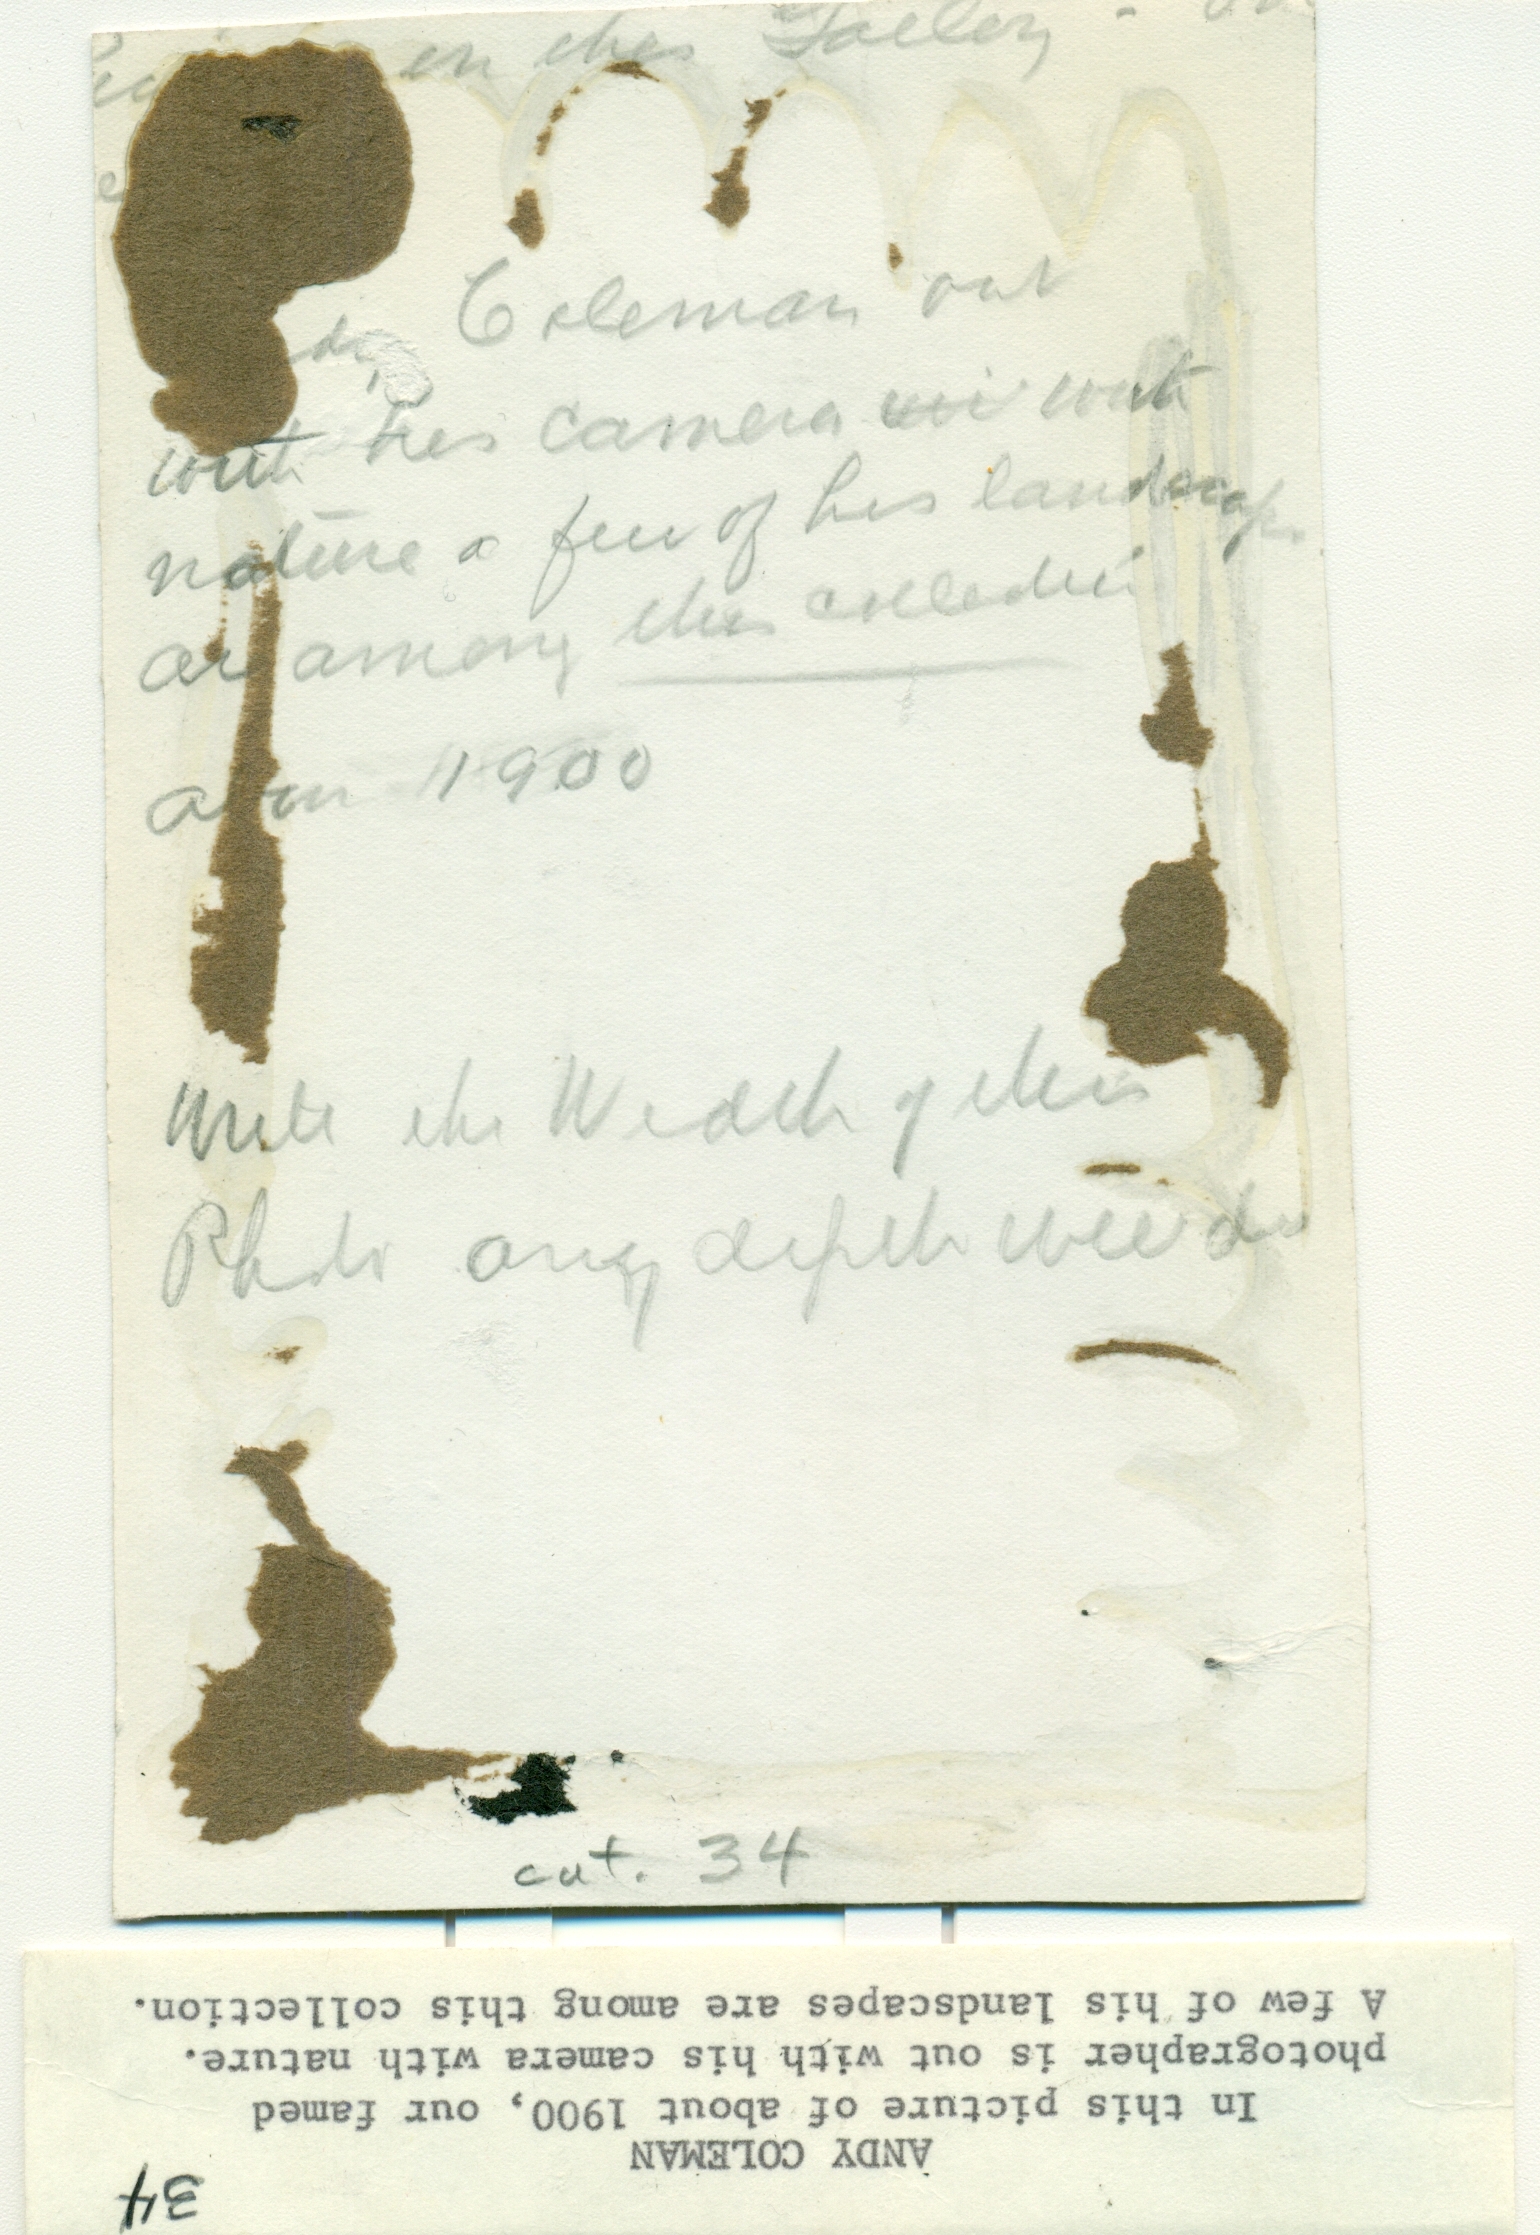 in this
Coleman out
with his camera with
nature a few of his landscape
ar among this collection
abou 1900
Write the Width of this
Photo any depth will do
cut. 34
34
ANDY COLEMAN
In this picture of about 1900, our famed
photographer is out with his camera with nature.
A few of his landscapes are among this collection.